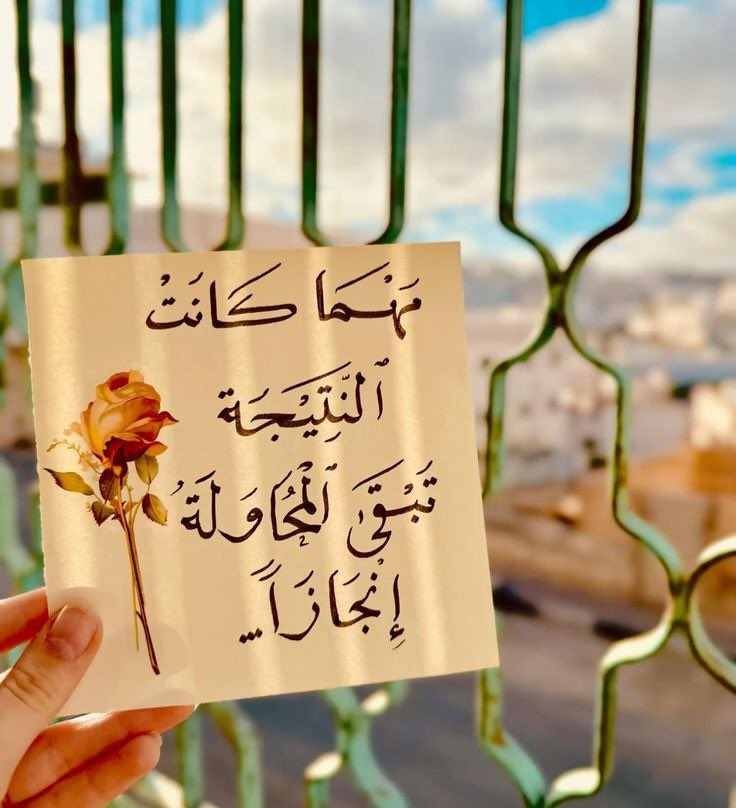 مَهْمَا كَانَتْ
ٱلنَّتِيْجَة
تَبْقَىٰ ٱلْمُحَاوَلَةُ
إِنْجَازَاً...